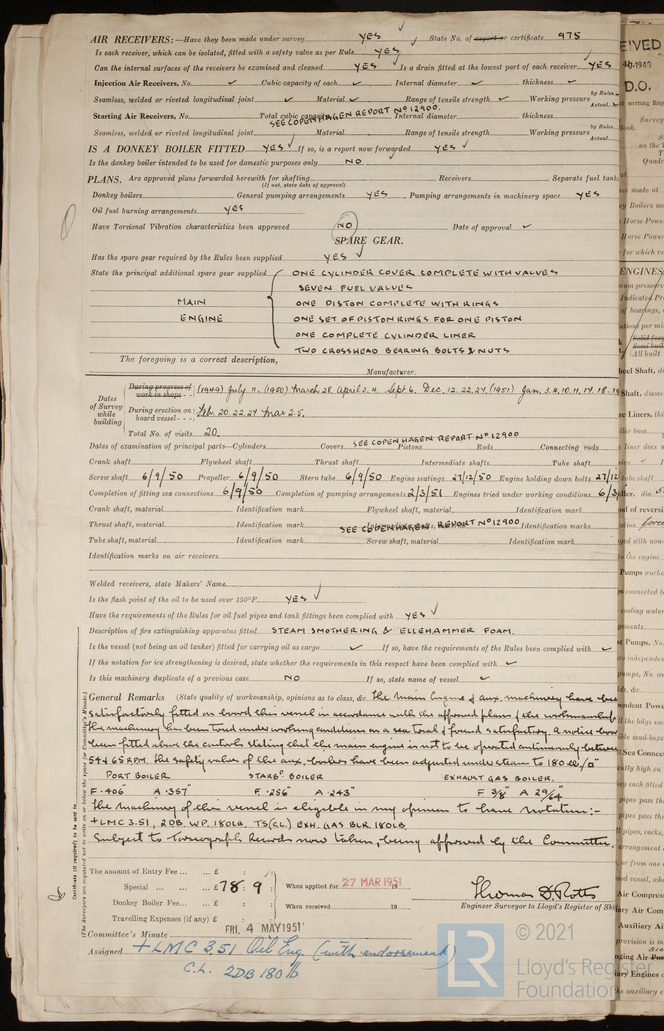 AIR RECEIVERS:—Have they been made under survey YES State No. of report or certificate 975
Is each receiver, which can be isolated, fitted with a safety valve as per Rule YES
Can the internal surfaces of the receivers be examined and cleaned YES Is a drain fitted at the lowest part of each receiver YES
Injection Air Receivers, No. ✓ Cubic capacity of each ✓ Internal diameter ✓ thickness ✓
Seamless, welded or riveted longitudinal joint ✓ Material ✓ Range of tensile strength ✓ Working pressure by Rules Actual
Starting Air Receivers, No. Total cubic capacity Internal diameter thickness
SEE COPENHAGEN REPORT No 12900.
Seamless, welded or riveted longitudinal joint Material Range of tensile strength Working pressure by Rules Actual
IS A DONKEY BOILER FITTED YES If so, is a report now forwarded YES
Is the donkey boiler intended to be used for domestic purposes only NO
PLANS. Are approved plans forwarded herewith for shafting Receivers Separate fuel tank
(If not, state date of approval)
Donkey boilers General pumping arrangements YES Pumping arrangements in machinery space YES
Oil fuel burning arrangements YES
Have Torsional Vibration characteristics been approved NO Date of approval ✓
SPARE GEAR.
Has the spare gear required by the Rules been supplied YES
State the principal additional spare gear supplied ONE CYLINDER COVER COMPLETE WITH VALVES
SEVEN FUEL VALVES
MAIN ONE PISTON COMPLETE WITH RINGS
ENGINE ONE SET OF PISTON RINGS FOR ONE PISTON
ONE COMPLETE CYLINDER LINER
TWO CROSSHEAD BEARING BOLTS & NUTS
The foregoing is a correct description,
Manufacturer.
Dates of Survey while building
During progress of work in shops - - (1949) July 11. (1950) March 28. April 3.4. Sept 6. Dec. 12.22.27. (1951) Jan. 3.4.10.11.17.18.19
During erection on board vessel - - - Feb. 20.22.27 Mar 2.5.
Total No. of visits 20.
Dates of examination of principal parts—Cylinders Covers Pistons Rods Connecting rods
SEE COPENHAGEN REPORT No 12900
Crank shaft Flywheel shaft Thrust shaft Intermediate shafts Tube shaft
Screw shaft 6/9/50 Propeller 6/9/50 Stern tube 6/9/50 Engine seatings 27/12/50 Engine holding down bolts 27/12
Completion of fitting sea connections 6/9/50 Completion of pumping arrangements 2/3/51 Engines tried under working conditions 6/3
Crank shaft, material Identification mark Flywheel shaft, material Identification mark
Thrust shaft, material Identification mark Identification marks
SEE COPENHAGEN REPORT No 12900
Tube shaft, material Identification mark Screw shaft, material Identification mark
Identification marks on air receivers
Welded receivers, state Makers' Name
Is the flash point of the oil to be used over 150°F. YES
Have the requirements of the Rules for oil fuel pipes and tank fittings been complied with YES
Description of fire extinguishing apparatus fitted STEAM SMOTHERING & ELLEHAMMER FOAM.
Is the vessel (not being an oil tanker) fitted for carrying oil as cargo ✓ If so, have the requirements of the Rules been complied with ✓
If the notation for ice strengthening is desired, state whether the requirements in this respect have been complied with ✓
Is this machinery duplicate of a previous case NO If so, state name of vessel ✓
General Remarks (State quality of workmanship, opinions as to class, &c. The Main Engine & aux. machinery have been
satisfactorily fitted on board this vessel in accordance with the approved plans & the workmanship
The machinery has been tried under working conditions on a sea trial & found satisfactory. A notice board
been fitted above the controls stating that the main engine is not to be operated continuously between
54 & 65 RPM. The safety valves of the aux. boilers have been adjusted under steam to 180 lb/□"
PORT BOILER STARBD BOILER EXHAUST GAS BOILER.
F .406" A .357" F .256" A .243" F 3/8" A 29/64"
The machinery of this vessel is eligible in my opinion to have notation:-
+LMC 3.51, 2DB. WP. 180LB. TS(CL) EXH. GAS BLR 180LB.
Subject to Torsiograph Records now taken, being approved by the Committee.
The amount of Entry Fee ... £ : :
Special ... ... £78 : 9 : When applied for 27 MAR 1951 19
Donkey Boiler Fee... ... £ : :
Travelling Expenses (if any) £ : : When received 19
Thomas D. Potts
Engineer Surveyor to Lloyd's Register of Shi
Committee's Minute FRI. 4 MAY 1951
Assigned +LMC 3.51 Oil Eng. (with endorsement)
C.L. 2DB 180 lb
© 2021
LR
Lloyd's Register
Foundation